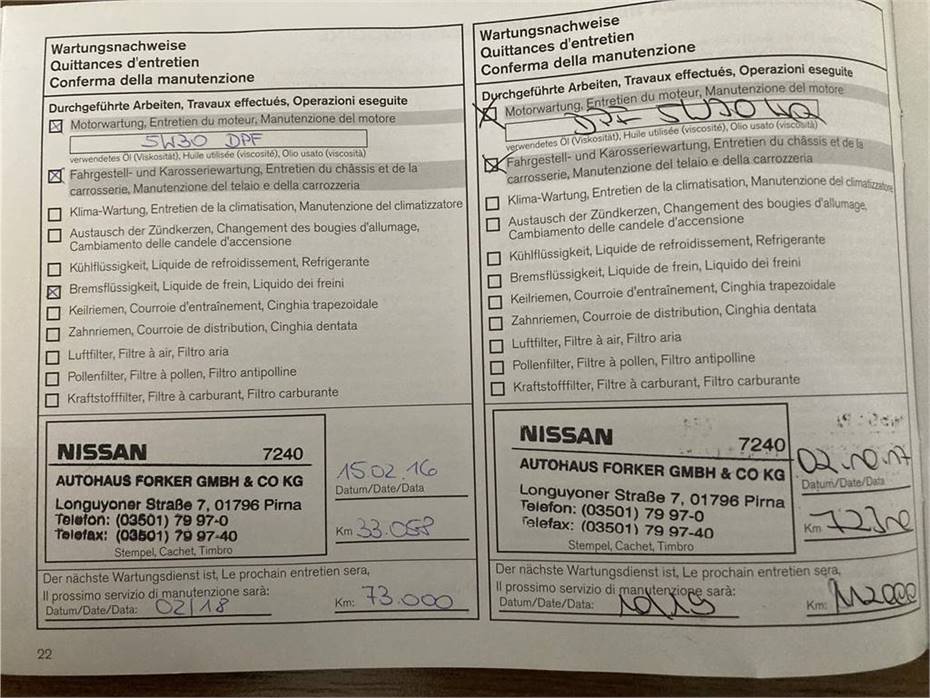 Wartungsnachweise
Quittances d'entretien
Conferma della manutenzione
Durchgeführte Arbeiten, Travaux effectués, Operazioni eseguite
Motorwartung, Entretien du moteur, Manutenzione del motore
5W30 DPF
verwendetes Öl (Viskosität), Huile utilisée (viscosité), Olio usato (viscosità)
Fahrgestell- und Karosseriewartung, Entretien du châssis et de la
carrosserie, Manutenzione del telaio e della carrozzeria
Klima-Wartung, Entretien de la climatisation, Manutenzione del climatizzatore
Austausch der Zündkerzen, Changement des bougies d'allumage,
Cambiamento delle candele d'accensione
Kühlflüssigkeit, Liquide de refroidissement, Refrigerante
Bremsflüssigkeit, Liquide de frein, Liquido dei freini
Keilriemen, Courroie d'entraînement, Cinghia trapezoidale
Zahnriemen, Courroie de distribution, Cinghia dentata
Luftfilter, Filtre à air, Filtro aria
Pollenfilter, Filtre à pollen, Filtro antipolline
Kraftstofffilter, Filtre à carburant, Filtro carburante
NISSAN 7240
AUTOHAUS FORKER GMBH & CO KG
Longuyoner Straße 7, 01796 Pirna
Telefon: (03501) 79 97-0
Telefax: (03501) 79 97-40
Stempel, Cachet, Timbro
15 02. 16
Datum/Date/Data
Km 33.058
Der nächste Wartungsdienst ist, Le prochain entretien sera,
Il prossimo servizio di manutenzione sarà:
Datum/Date/Data: 02/18 Km: 73.000
22
Wartungsnachweise
Quittances d'entretien
Conferma della manutenzione
Durchgeführte Arbeiten, Travaux effectués, Operazioni eseguite
Motorwartung, Entretien du moteur, Manutenzione del motore
DPF 5W30
verwendetes Öl (Viskosität), Huile utilisée (viscosité), Olio usato (viscosità)
Fahrgestell- und Karosseriewartung, Entretien du châssis et de la
carrosserie, Manutenzione del telaio e della carrozzeria
Klima-Wartung, Entretien de la climatisation, Manutenzione del climatizzatore
Austausch der Zündkerzen, Changement des bougies d'allumage,
Cambiamento delle candele d'accensione
Kühlflüssigkeit, Liquide de refroidissement, Refrigerante
Bremsflüssigkeit, Liquide de frein, Liquido dei freini
Keilriemen, Courroie d'entraînement, Cinghia trapezoidale
Zahnriemen, Courroie de distribution, Cinghia dentata
Luftfilter, Filtre à air, Filtro aria
Pollenfilter, Filtre à pollen, Filtro antipolline
Kraftstofffilter, Filtre à carburant, Filtro carburante
NISSAN 7240
AUTOHAUS FORKER GMBH & CO KG
Longuyoner Straße 7, 01796 Pirna
Telefon: (03501) 79 97-0
Telefax: (03501) 79 97-40
Stempel, Cachet, Timbro
02.10.17
Datum/Date/Data
Km
Der nächste Wartungsdienst ist, Le prochain entretien sera,
Il prossimo servizio di manutenzione sarà:
Datum/Date/Data: 10/19 Km: 112000